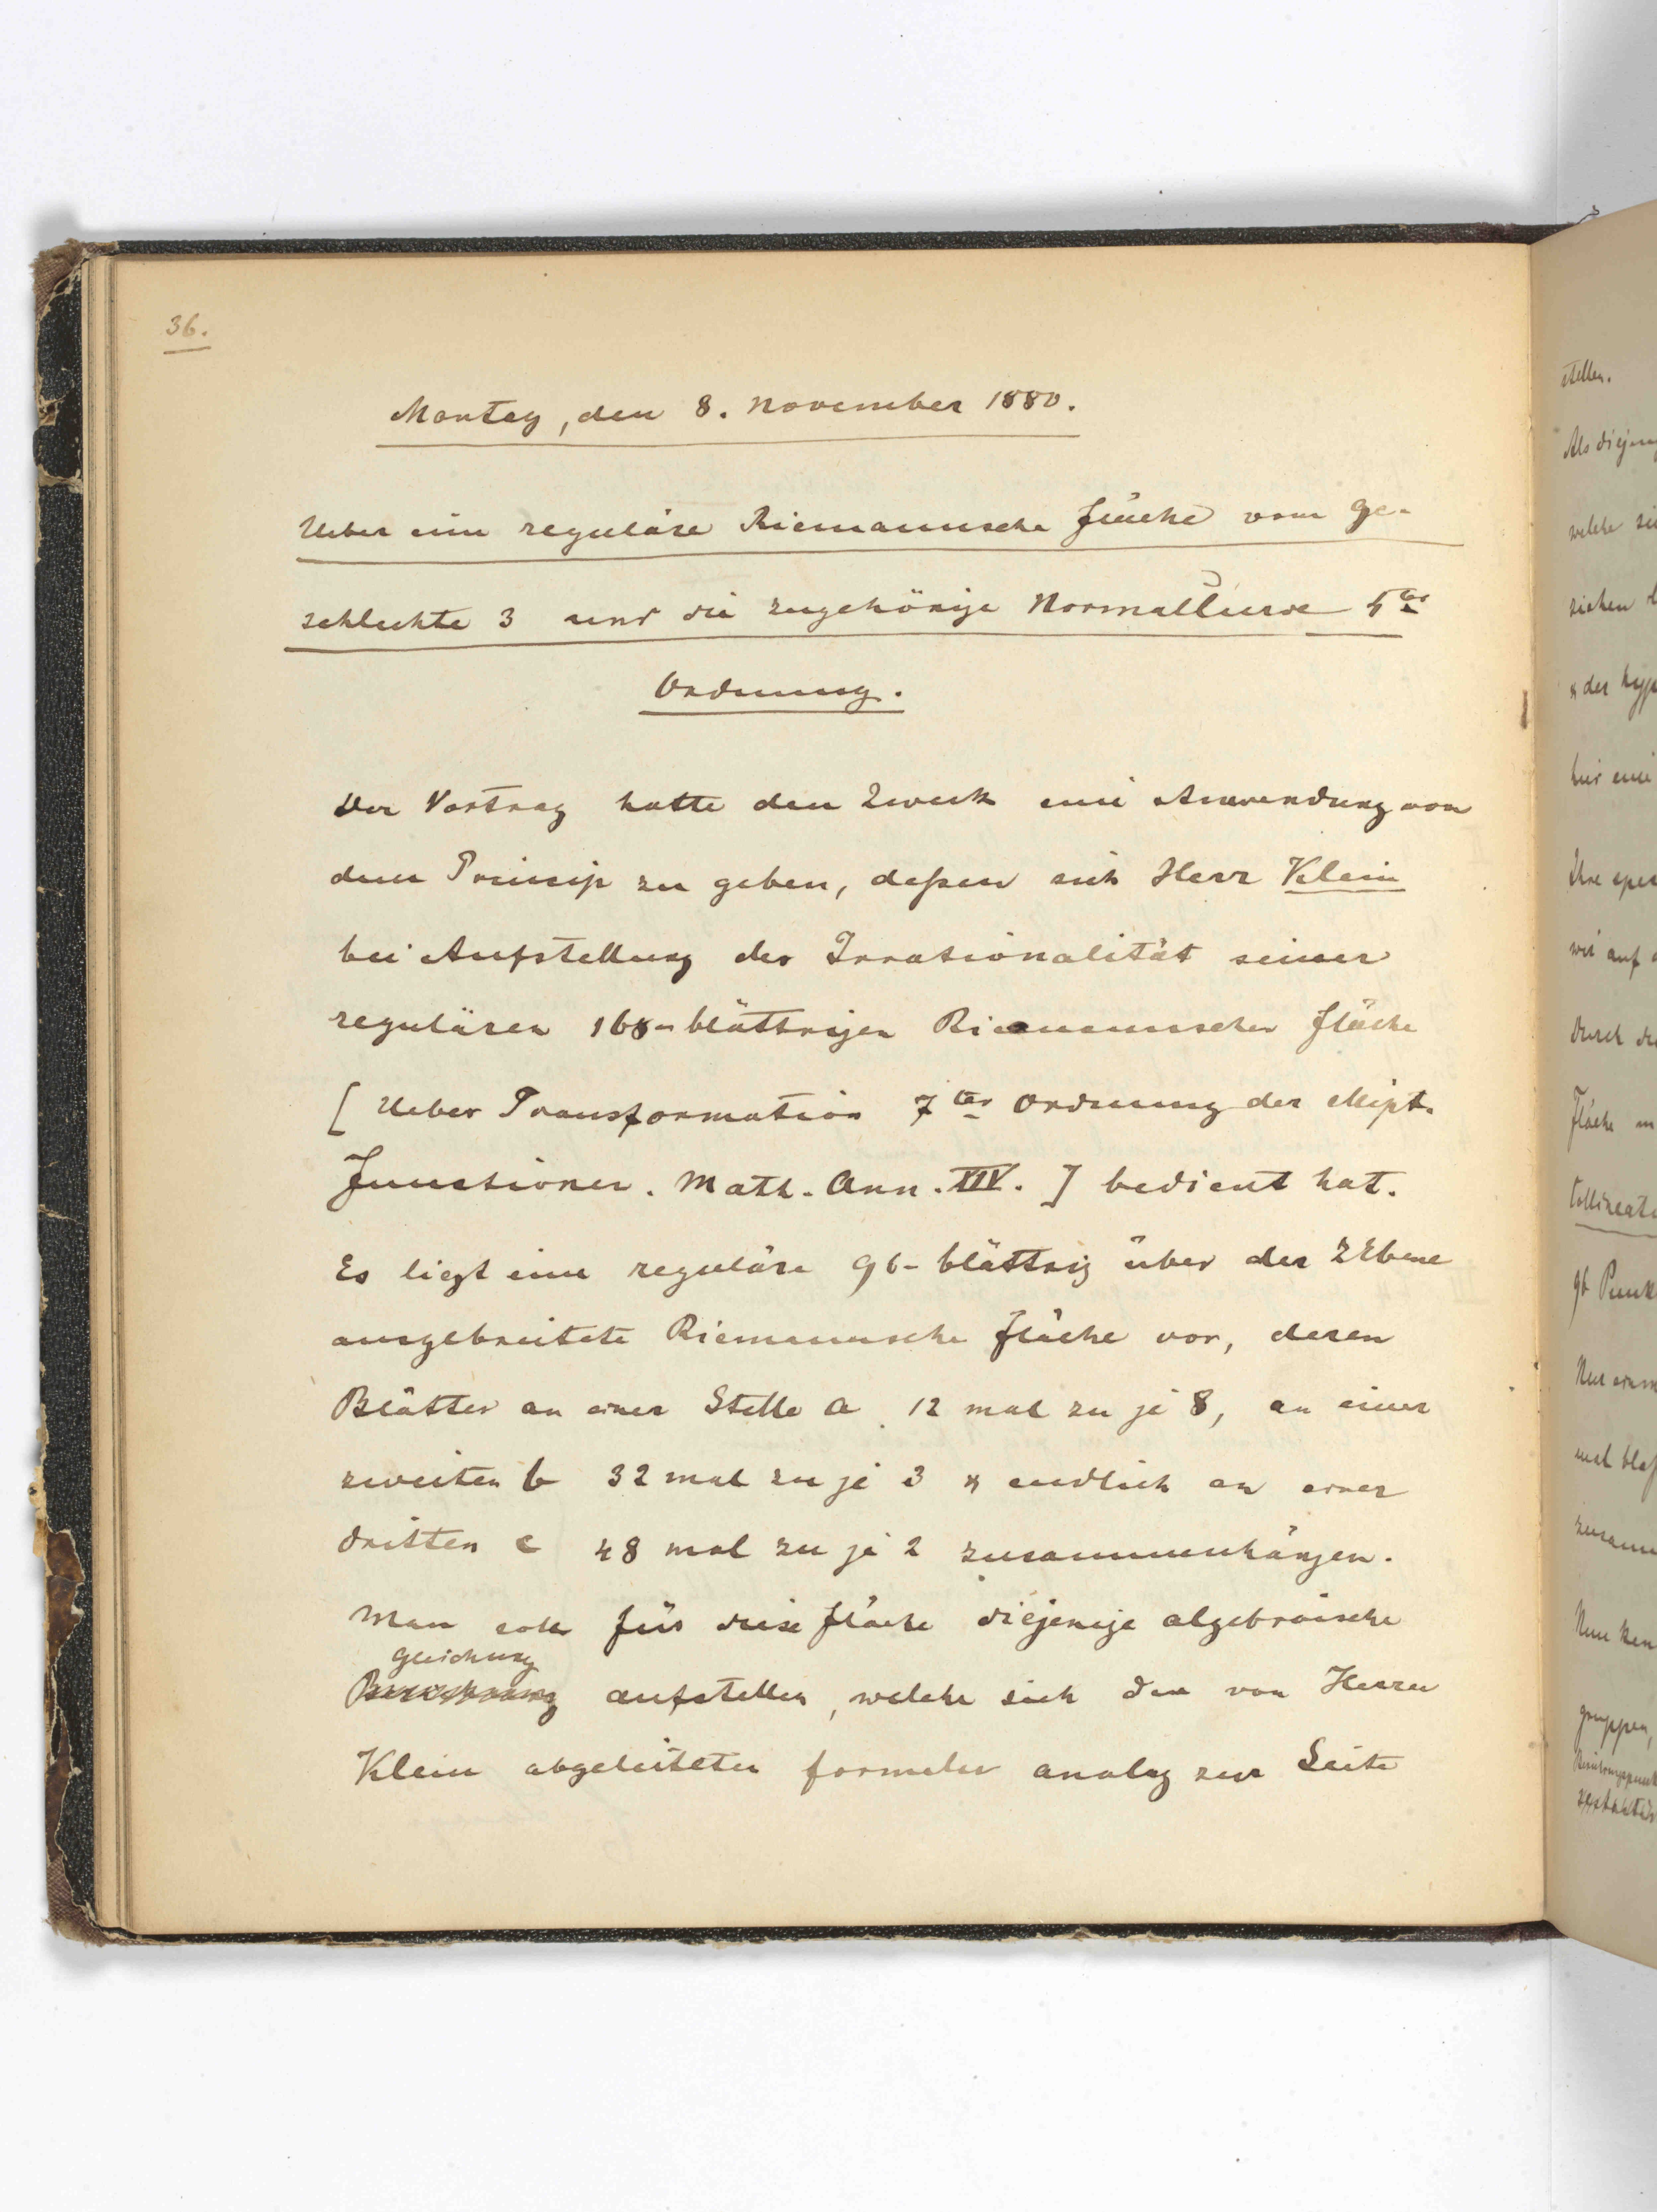 36.
Montag, den 8. November 1880.
Ueber eine reguläre Riemannsche Fläche vom Ge-
schlechte 3 und die zugehörige Normalcurve 4ter
Ordnung.
Der Vortrag hatte den Zweck eine Anwendung von
dem Princip zu geben, deßen sich Herr Klein
bei Aufstellung der Irrationalität seiner
regulären 168-blättrigen Riemannschen Fläche
[Ueber Transformation 7ter Ordnung der ellipt.
Functionen. Math. Ann. XIV.] bedient hat.
Es liegt eine reguläre 96-blättrig über der Z Ebene
ausgebreitete Riemannsche Fläche vor, deren
Blätter an einer Stelle a 12 mal zu je 8, an einer
zweiten b 32 mal zu je 3 & endlich an einer
dritten c 48 mal zu je 2 zusammenhängen.
Man soll für diese Fläche diejenige algebraische
Gleichung
aufstellen, welche sich den von Herrn
Klein abgeleiteten Formeln analog zur Seite
stellen.
Als diejen
welche si
ziehen
& der hyp
hier eine
Ihre spec
wir auf
Durch di
Fläche
Collineati
96 Punk
Nun
und bloß
zusamm
Nun ken
gruppen,